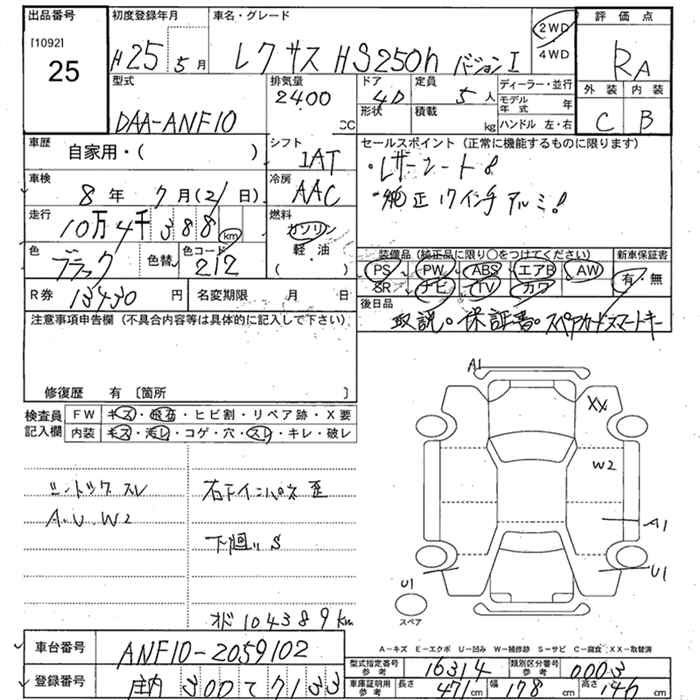 出品番号
[1092]
25
初度登録年月
H25 5月
車名・グレード
レクサス HS250h バージョンI
2WD
4WD
評価点
RA
外装 内装
C B
型式
DAA-ANF10
排気量
2400
CC
ドア
4D
定員
5人
形状
積載
kg
ディーラー・並行
モデル年式 年
ハンドル 左・右
車歴
自家用・( )
シフト
IAT
セールスポイント (正常に機能するものに限ります)
・レザーシート
・純正17インチアルミ
車検
8年 7月(21日)
冷房
AAC
走行
10万4千388km
燃料
ガソリン
軽油
( )
色
ブラック
色替
色コード
212
装備品 (純正品に限り○をつけてください)
PS PW ABS エアB AW
SR ナビ TV カワ
新車保証書
有・無
R券
13430円
名変期限 月 日
後日品
取説。保証書。スペアカードスマートキー
注意事項申告欄 (不具合内容等は具体的に記入して下さい)
修復歴 有 〔箇所 〕
検査員記入欄
FW キズ・飛石・ヒビ割・リペア跡・X要
内装 キズ・汚レ・コゲ・穴・スレ・キレ・破レ
A.U.W2
右下インパネ歪
下廻りS
オド104389km
A1
XX
W2
A1
U1
U1
スペア
A-キズ E-エクボ U-凹み W-補修跡 S-サビ C-腐食 XX-取替済
車台番号
ANF10-2059102
登録番号
庄内 300 て 7133
型式指定番号
参考
16314
類別区分番号
参考
0003
車庫証明用
参考
長さ 471cm
幅 178cm
高さ 146cm